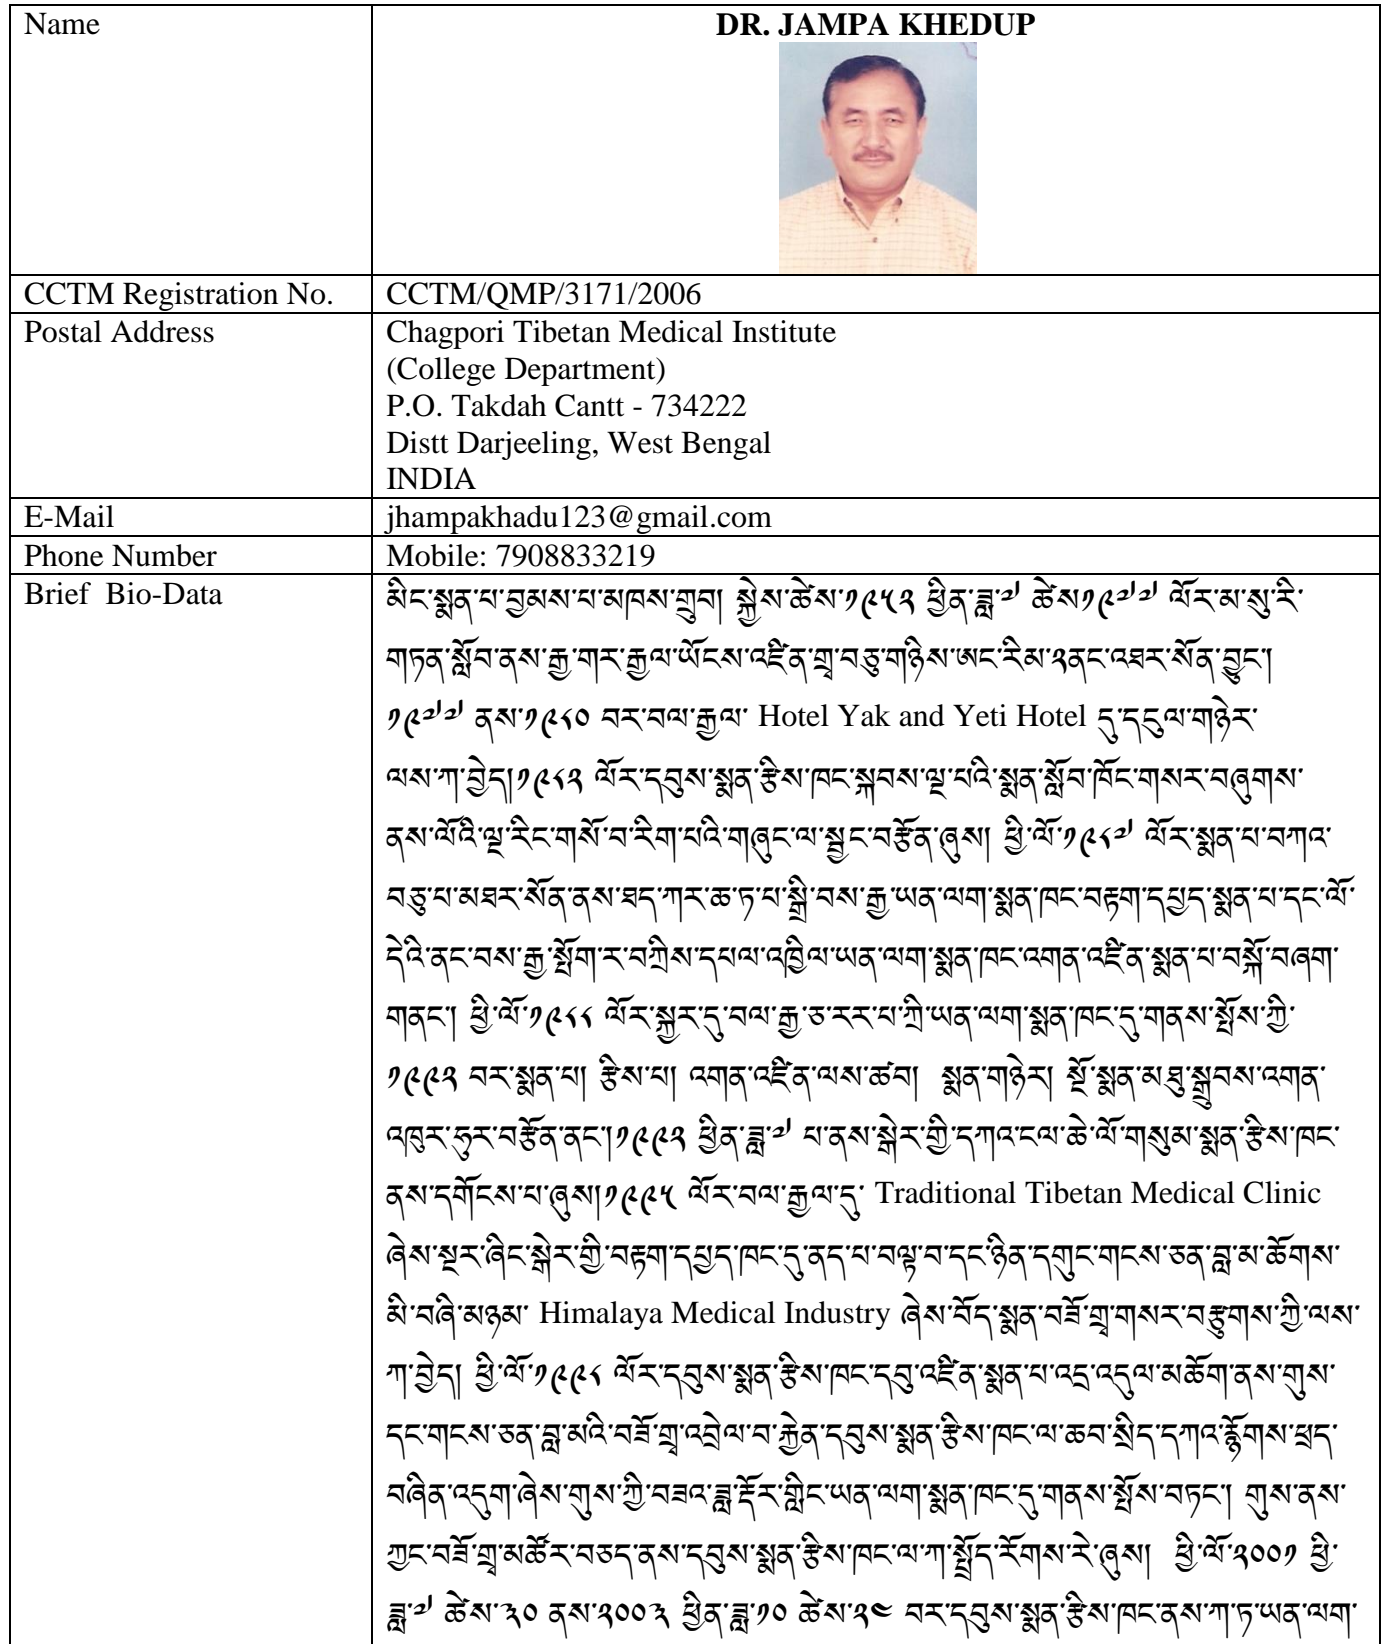 Name
DR. JAMPA KHEDUP
CCTM Registration No.
CCTM/QMP/3171/2006
Postal Address
Chagpori Tibetan Medical Institute
(College Department)
P.O. Takdah Cantt - 734222
Distt Darjeeling, West Bengal
INDIA
E-Mail
jhampakhadu123@gmail.com
Phone Number
Mobile: 7908833219
Brief Bio-Data
མིང་སྨན་པ་བྱམས་པ་མཁས་གྲུབ། སྐྱེས་ཚེས་༡༩༥༢ ཕྱིན་ཟླ་༧ ཚེས༡༩༧༧ ལོར་མ་སུ་རི་
གཏན་སློབ་ནས་རྒྱ་གར་རྒྱལ་ཡོངས་འཛིན་གྲྭ་བཅུ་གཉིས་ཨང་རིམ་༢ནང་འཐར་སོན་བྱུང་།
༡༩༧༧ ནས་༡༩༨༠ བར་བལ་རྒྱལ་ Hotel Yak and Yeti Hotel དུ་དངུལ་གཉེར་
ལས་ཀ་བྱེད།༡༩༨༢ ལོར་དབུས་སྨན་རྩིས་ཁང་སྐབས་ལྔ་པའི་སྨན་སློབ་ཁོང་གསར་བཞུགས་
ནས་ལོའི་ལྔ་རིང་གསོ་བ་རིག་པའི་གཞུང་ལ་སྦྱང་བརྩོན་ཞུས། ཕྱི་ལོ་༡༩༨༧ ལོར་སྨན་པ་བཀའ་
བཅུ་པ་མཐར་སོན་ནས་ཐད་ཀར་ཆ་ཏ་པ་སྒྲི་བས་རྒྱ་ཡན་ལག་སྨན་ཁང་བརྟག་དཔྱད་སྨན་པ་དང་ལོ་
དེའི་ནང་བས་རྒྱ་སྤོག་ར་བཀྲིས་དཔལ་འཁྱིལ་ཡན་ལག་སྨན་ཁང་འགན་འཛིན་སྨན་པ་བསྐོ་བཞག་
གནང་། ཕྱི་ལོ་༡༩༨༨ ལོར་སྐྱར་དུ་བལ་རྒྱ་ཅ་རར་པ་ཀྲི་ཡན་ལག་སྨན་ཁང་དུ་གནས་སྤོས་ཀྱི་
༡༩༩༢ བར་སྨན་པ། རྩིས་པ། འགན་འཛིན་ལས་ཚབ།  སྨན་གཉེར། སྔོ་སྨན་མཐུ་སྒྲུབས་འགན་
འཁུར་ཧུར་བརྩོན་ནང་།༡༩༩༢ ཕྱིན་ཟླ་༧ པ་ནས་སྒེར་གྱི་དཀའ་ངལ་ཆེ་ལོ་གསུམ་སྨན་རྩིས་ཁང་
ནས་དགོངས་པ་ཞུས།༡༩༩༥ ལོར་བལ་རྒྱལ་དུ་ Traditional Tibetan Medical Clinic
ཞེས་སྔར་ཞིང་སྒེར་གྱི་བརྟག་དཔྱད་ཁང་དུ་ནད་པ་བལྟ་བ་དང་ཉིན་དགུང་གངས་ཅན་བླ་མ་ཚོགས་
མི་བཞི་མཉམ་ Himalaya Medical Industry ཞེས་བོད་སྨན་བཟོ་གྲྭ་གསར་བརྩུགས་ཀྱི་ལས་
ཀ་བྱེད། ཕྱི་ལོ་༡༩༩༨ ལོར་དབུས་སྨན་རྩིས་ཁང་དབུ་འཛིན་སྨན་པ་འདྲ་འདུལ་མཆོག་ནས་གུས་
དང་གངས་ཅན་བླ་མའི་བཟོ་གྲྭ་འབྲེལ་བ་རྐྱེན་དབུས་སྨན་རྩིས་ཁང་ལ་ཆབ་སྲིད་དཀའ་རྙོགས་ཕྲད་
བཞིན་འདུག་ཞེས་གུས་ཀྱི་བཟའ་ཟླ་རྡོར་གླིང་ཡན་ལག་སྨན་ཁང་དུ་གནས་སྤོས་བཏང་། གུས་ནས་
ཀྱང་བཟོ་གྲྭ་མཚོར་བཅད་ནས་དབུས་སྨན་རྩིས་ཁང་ལ་ཀ་སྤྲོད་རོགས་རེ་ཞུས།  ཕྱི་ལོ་༢༠༠༡ ཕྱི་
ཟླ་༧ ཚེས་༣༠ ནས་༢༠༠༣ ཕྱིན་ཟླ་༡༠ ཚེས་༢༤ བར་དབུས་སྨན་རྩིས་ཁང་ནས་ཀ་ཏ་ཡན་ལག་